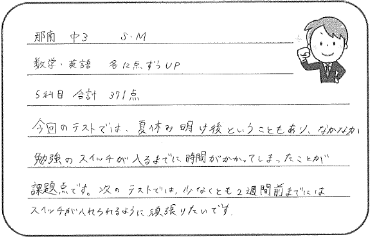 那南 中3 S.M
数学・英語 各12点ずつUP
5科目 合計 371点
今回のテストでは、夏休み明け後ということもあり、なかなか
勉強のスイッチが入るまでに時間がかかってしまったことが
課題点です。次のテストでは、少なくとも2週間前までには
スイッチが入れられるように頑張りたいです。